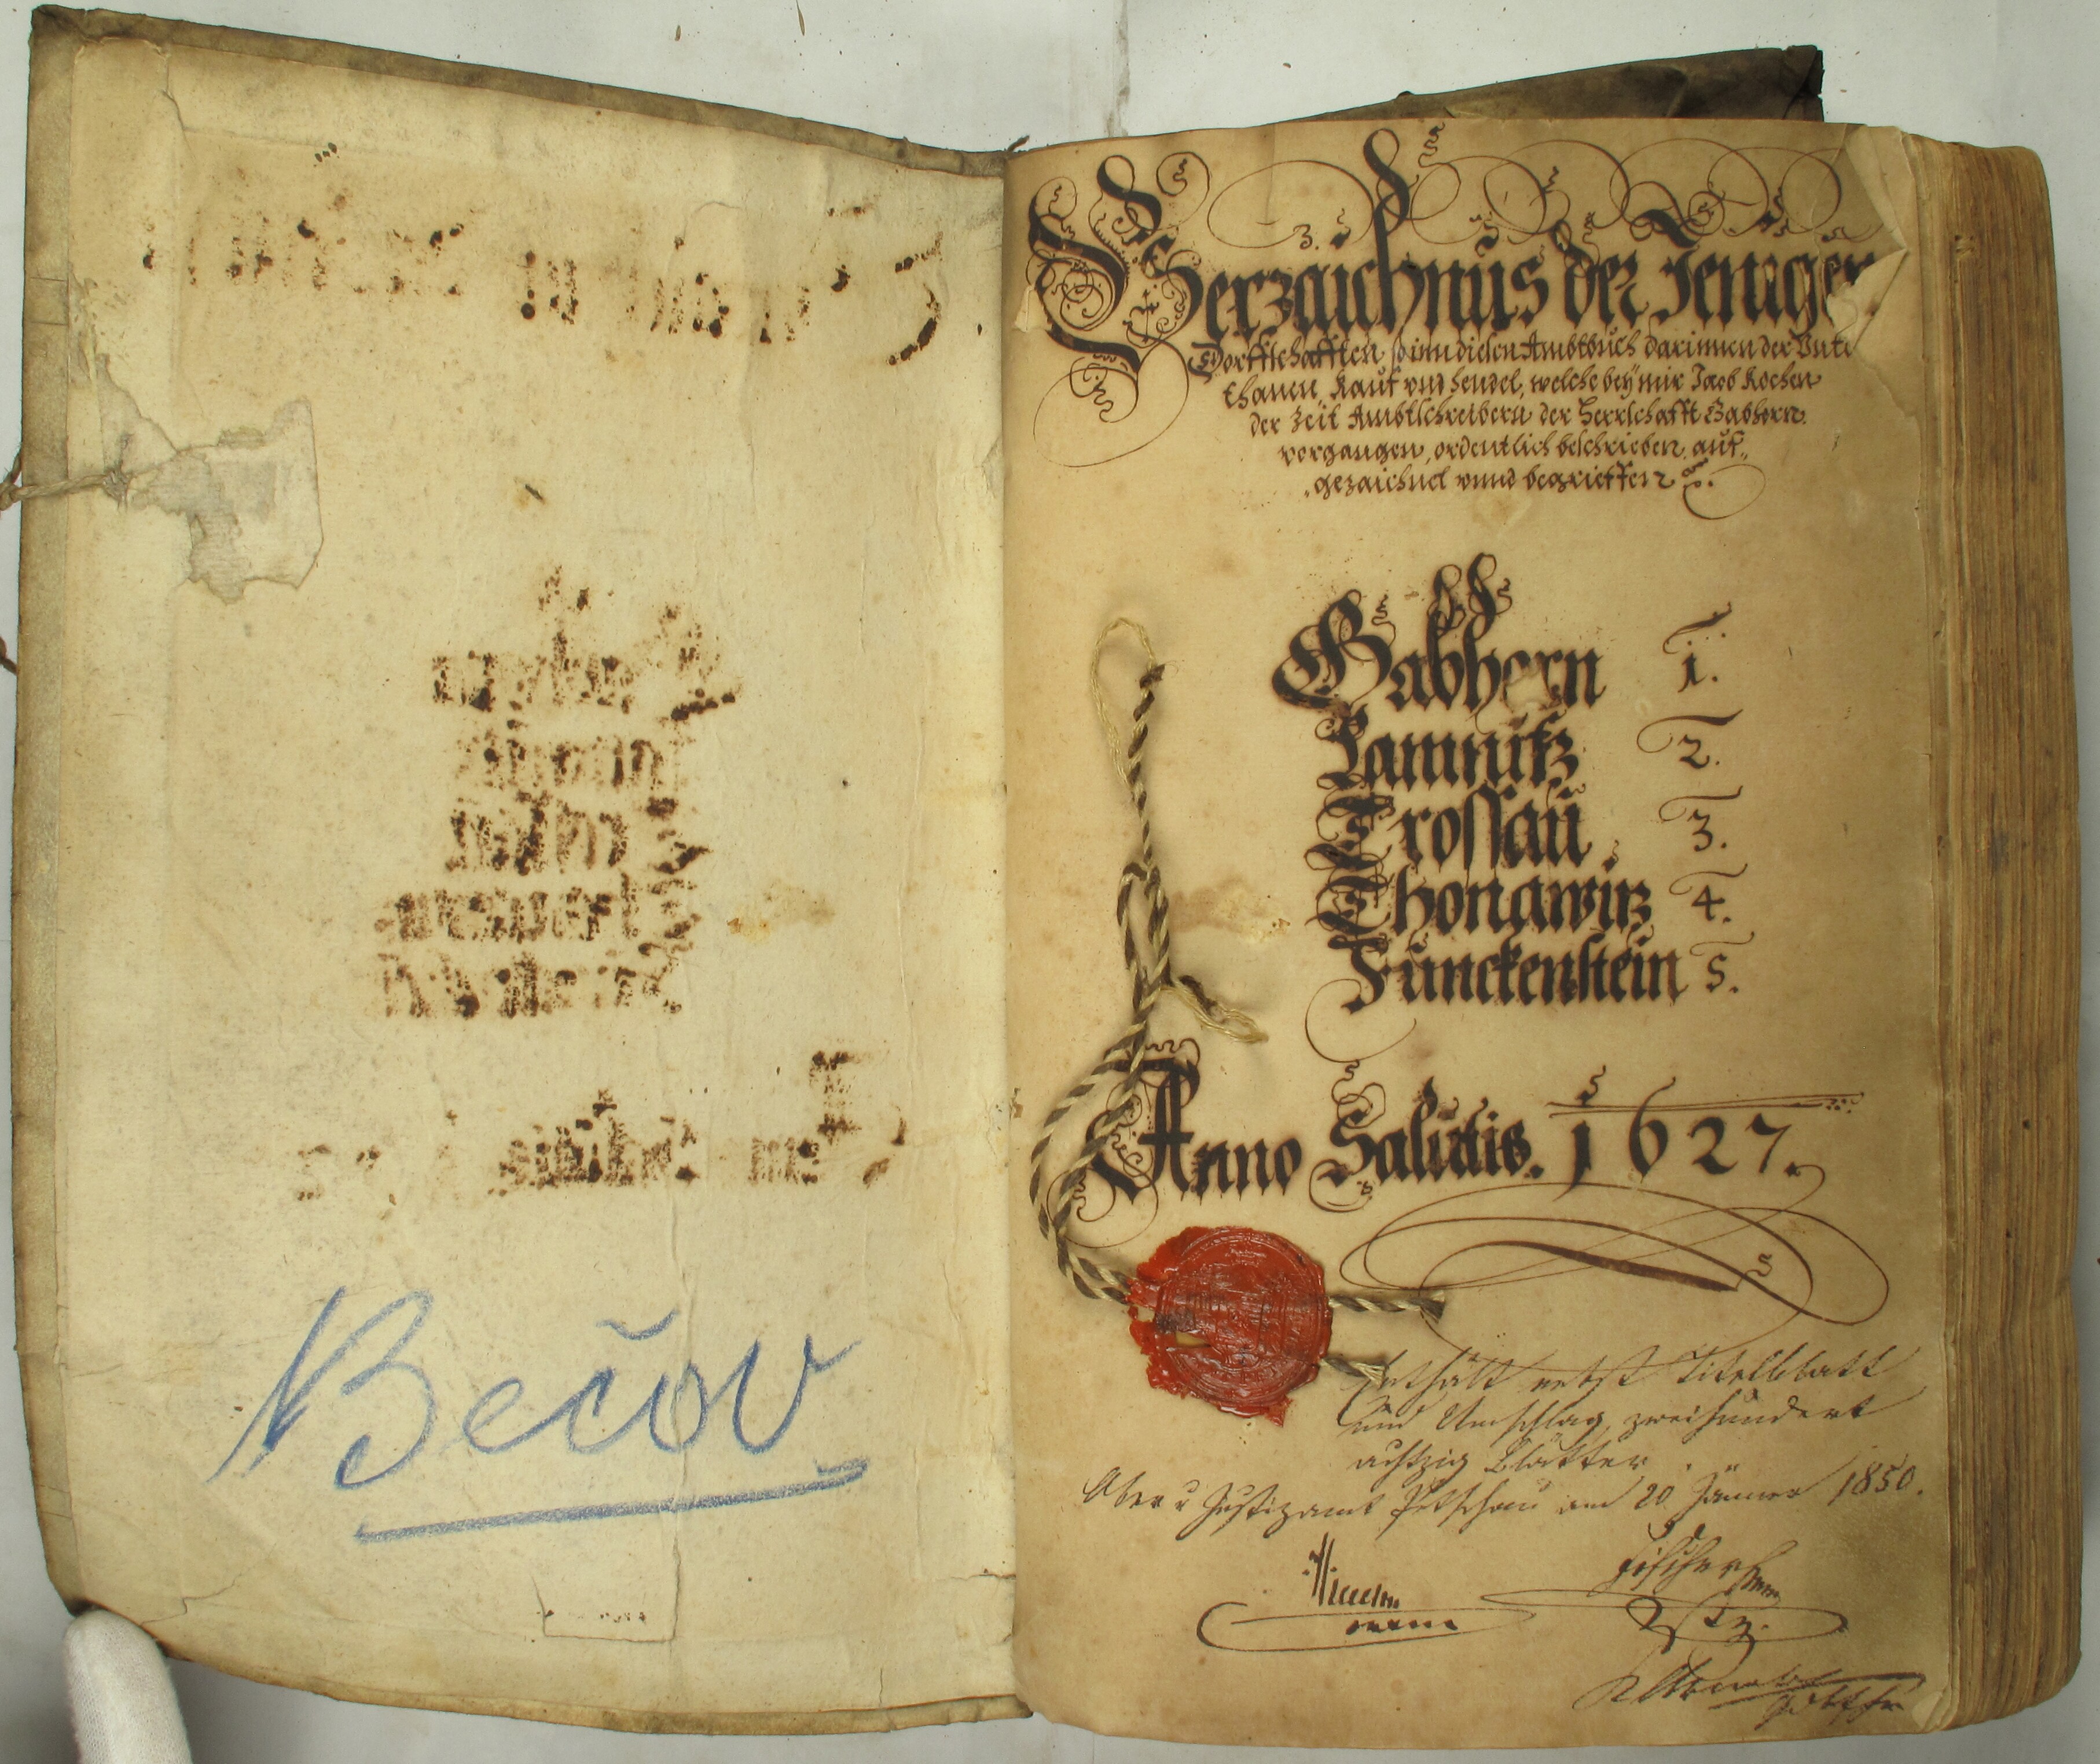 Bečov
3.
Verzaichnus der Jenigen
Dorffschafften so inn diesen Ambtbuch darinnen der Unter
thanen, Kauf vnd hendel, welche beÿ mir Jacob Kochen
der Zeit Ambtschreibern der Herrschafft Gabhorn
vorgangen, ordentlich beschrieben, auf„
„gezaichnet vnnd begrieffen
Gabhorn 1.
Lamnitz 2.
Trossau 3.
Thonawitz 4.
Funckenstein 5.
Anno Salutis. 1627.
Enthält nebst Titelblatt
und Umschlag zweihundert
achtzig Blätter.
Ober u Justizamt Petschau am 20 Jänner 1850.
Fischer